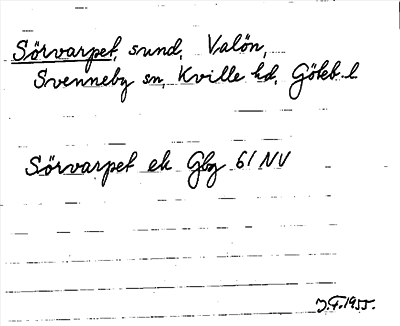 Sörvarpet, sund, Valön,
Svenneby sn, Kville hd, Göteb. l
Sörvarpet ek Gbg 61 NV
J.F. 1955.